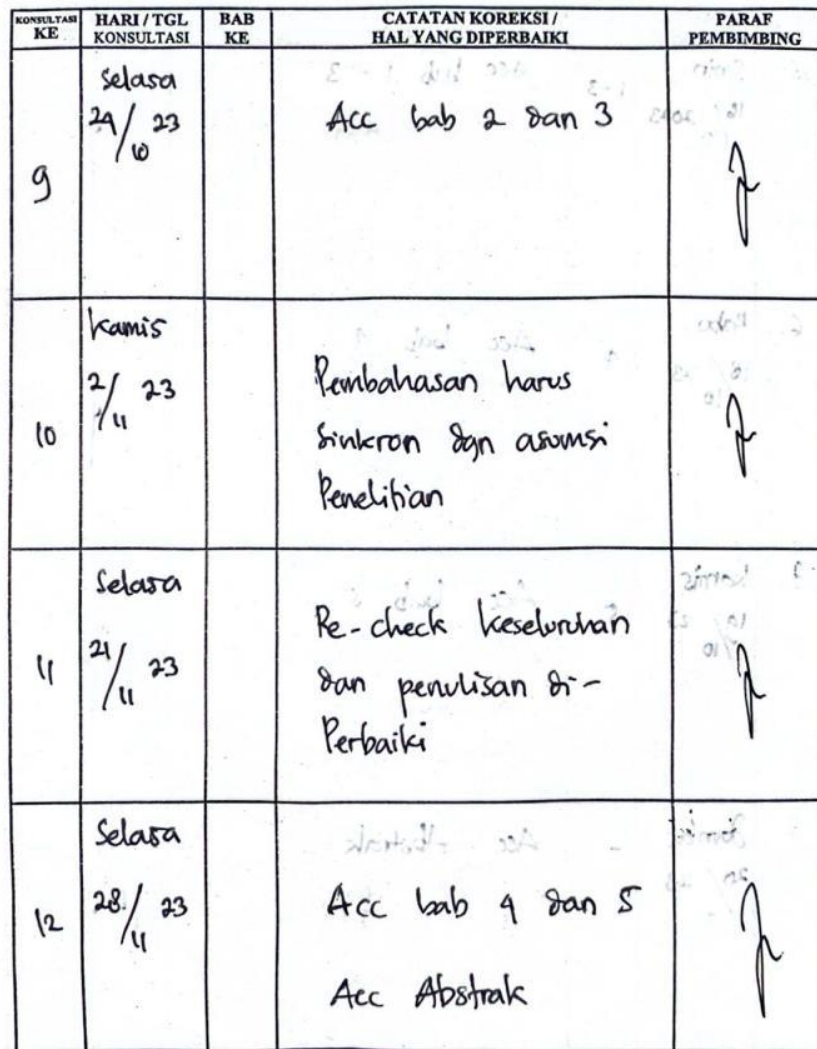 KONSULTASI KE	HARI / TGL KONSULTASI	BAB KE	CATATAN KOREKSI / HAL YANG DIPERBAIKI	PARAF PEMBIMBING
Selasa
24/10 23
9
Acc bab 2 dan 3
Kamis
2/11 23
10
Pembahasan harus
sinkron dgn asumsi
Penelitian
Selasa
21/11 23
11
Re-check keseluruhan
dan penulisan di-
Perbaiki
Selasa
28/11 23
12
Acc bab 4 dan 5
Acc Abstrak